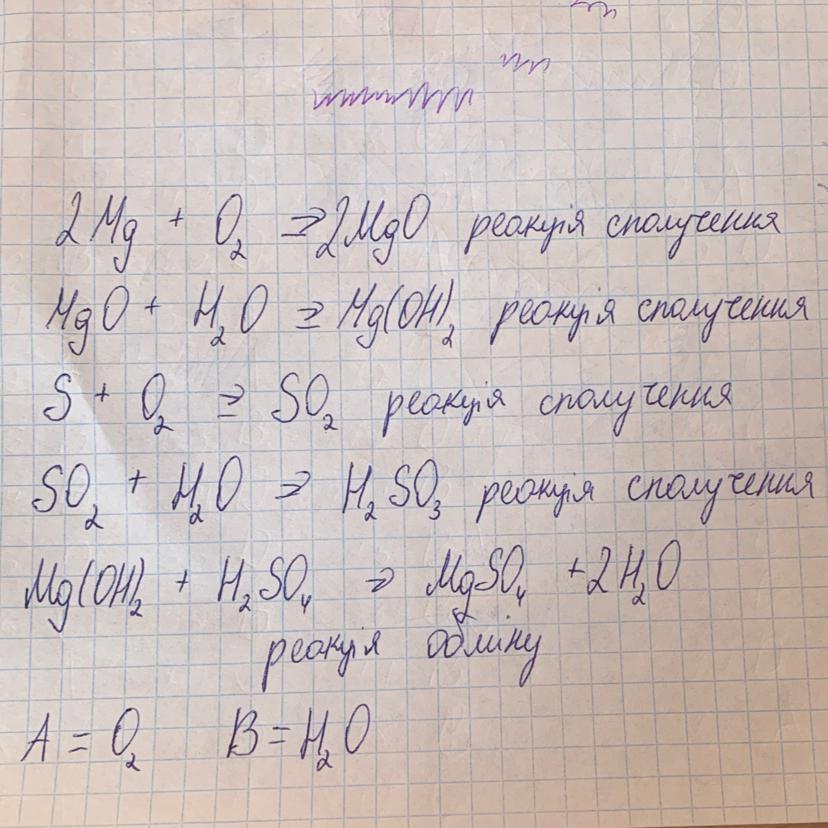 2Mg + O₂ ⇒ 2MgO реакція сполучення
MgO + H₂O ⇒ Mg(OH)₂ реакція сполучення
S + O₂ ⇒ SO₂ реакція сполучення
SO₂ + H₂O ⇒ H₂SO₃ реакція сполучення
Mg(OH)₂ + H₂SO₄ ⇒ MgSO₄ + 2H₂O
реакція обміну
A = O₂ B = H₂O